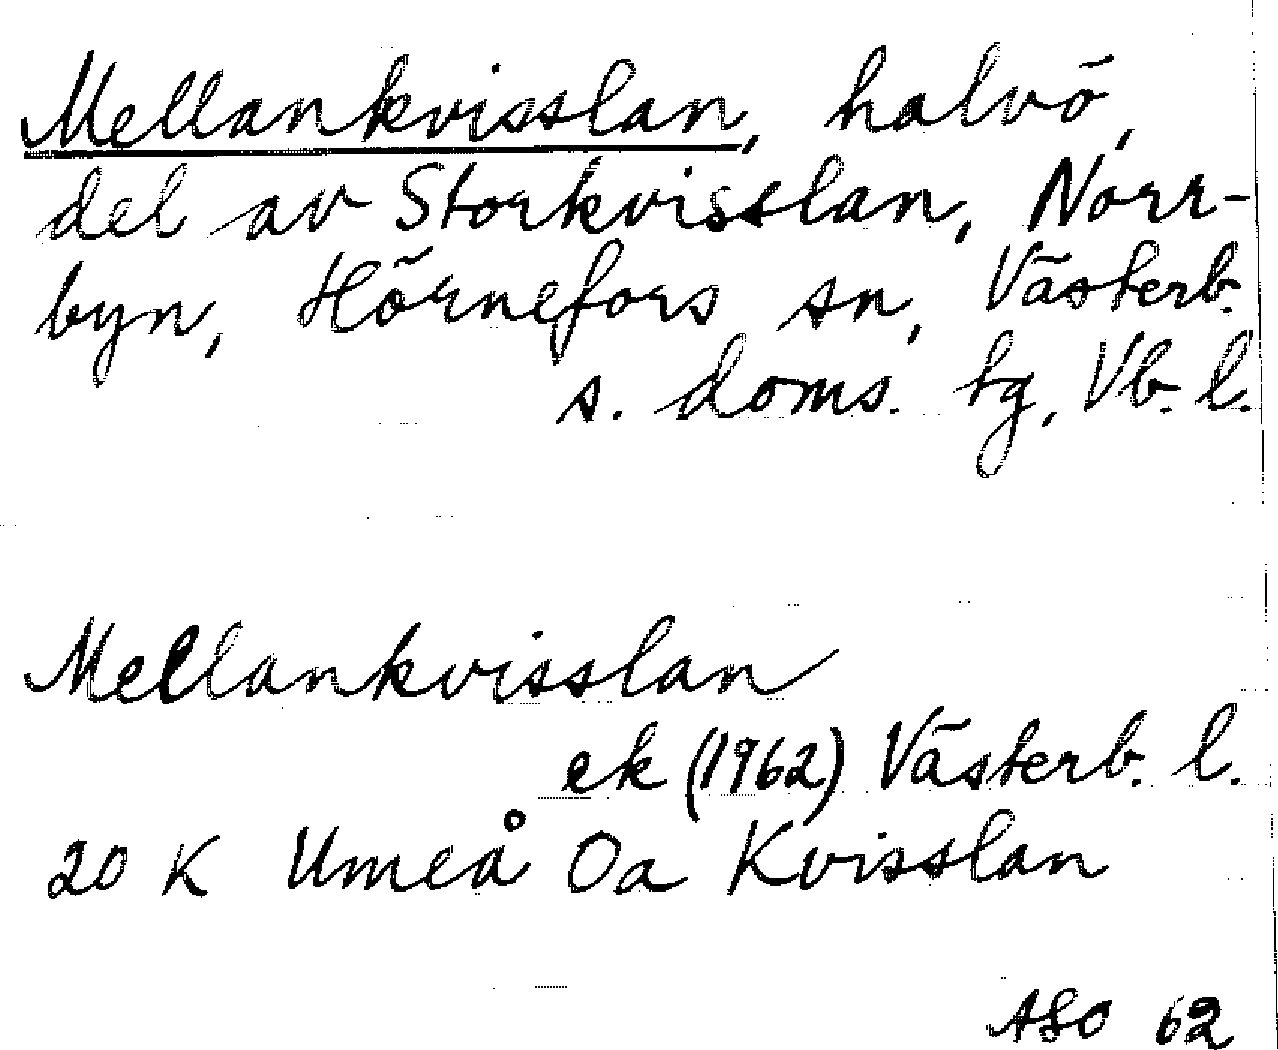 Mellankvisslan, halvö,
del av Storkvisslan, Norr-
byn, Hörnefors sn, Västerb.
s. doms. tg, Vb. l.
Mellankvisslan
ek (1962) Västerb. l.
20 K Umeå Oa Kvisslan
ASO 62